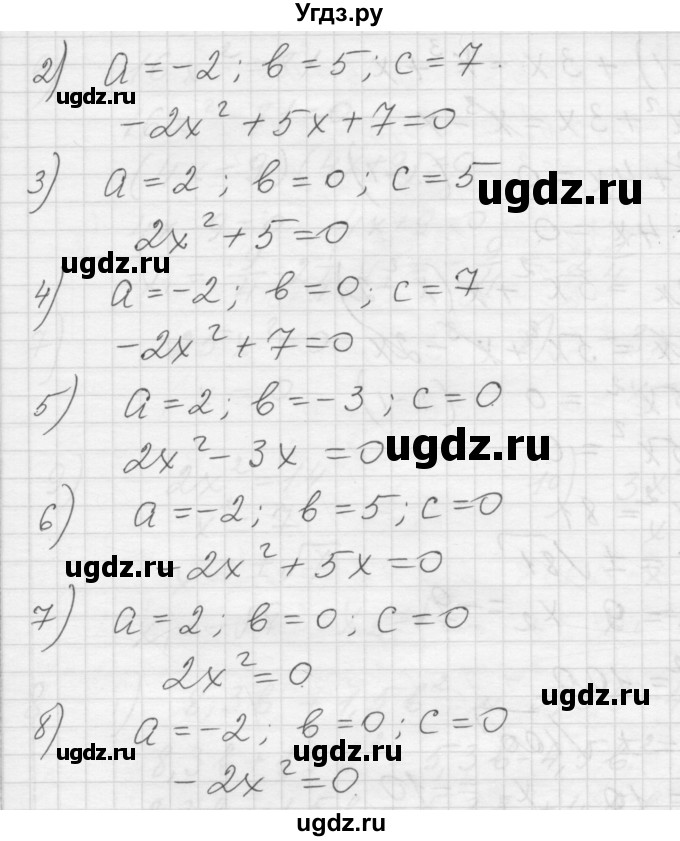 Угдз.ру
2) a = -2; в = 5; c = 7.
ugdz.ru
-2x² + 5x + 7 = 0
3) a = 2; в = 0; c = 5
ugdz.ru
2x² + 5 = 0
ugdz.ru
4) a = -2; в = 0; c = 7
-2x² + 7 = 0
5) a = 2; в = -3; c = 0.
ugdz.ru
2x² - 3x = 0
6) a = -2; в = 5; c = 0
ugdz.ru
-2x² + 5x = 0
7) a = 2; в = 0; c = 0
2x² = 0.
ugdz.ru
8) a = -2; в = 0; c = 0
ugdz.ru
ugdz.ru
-2x² = 0.
ugdz.ru